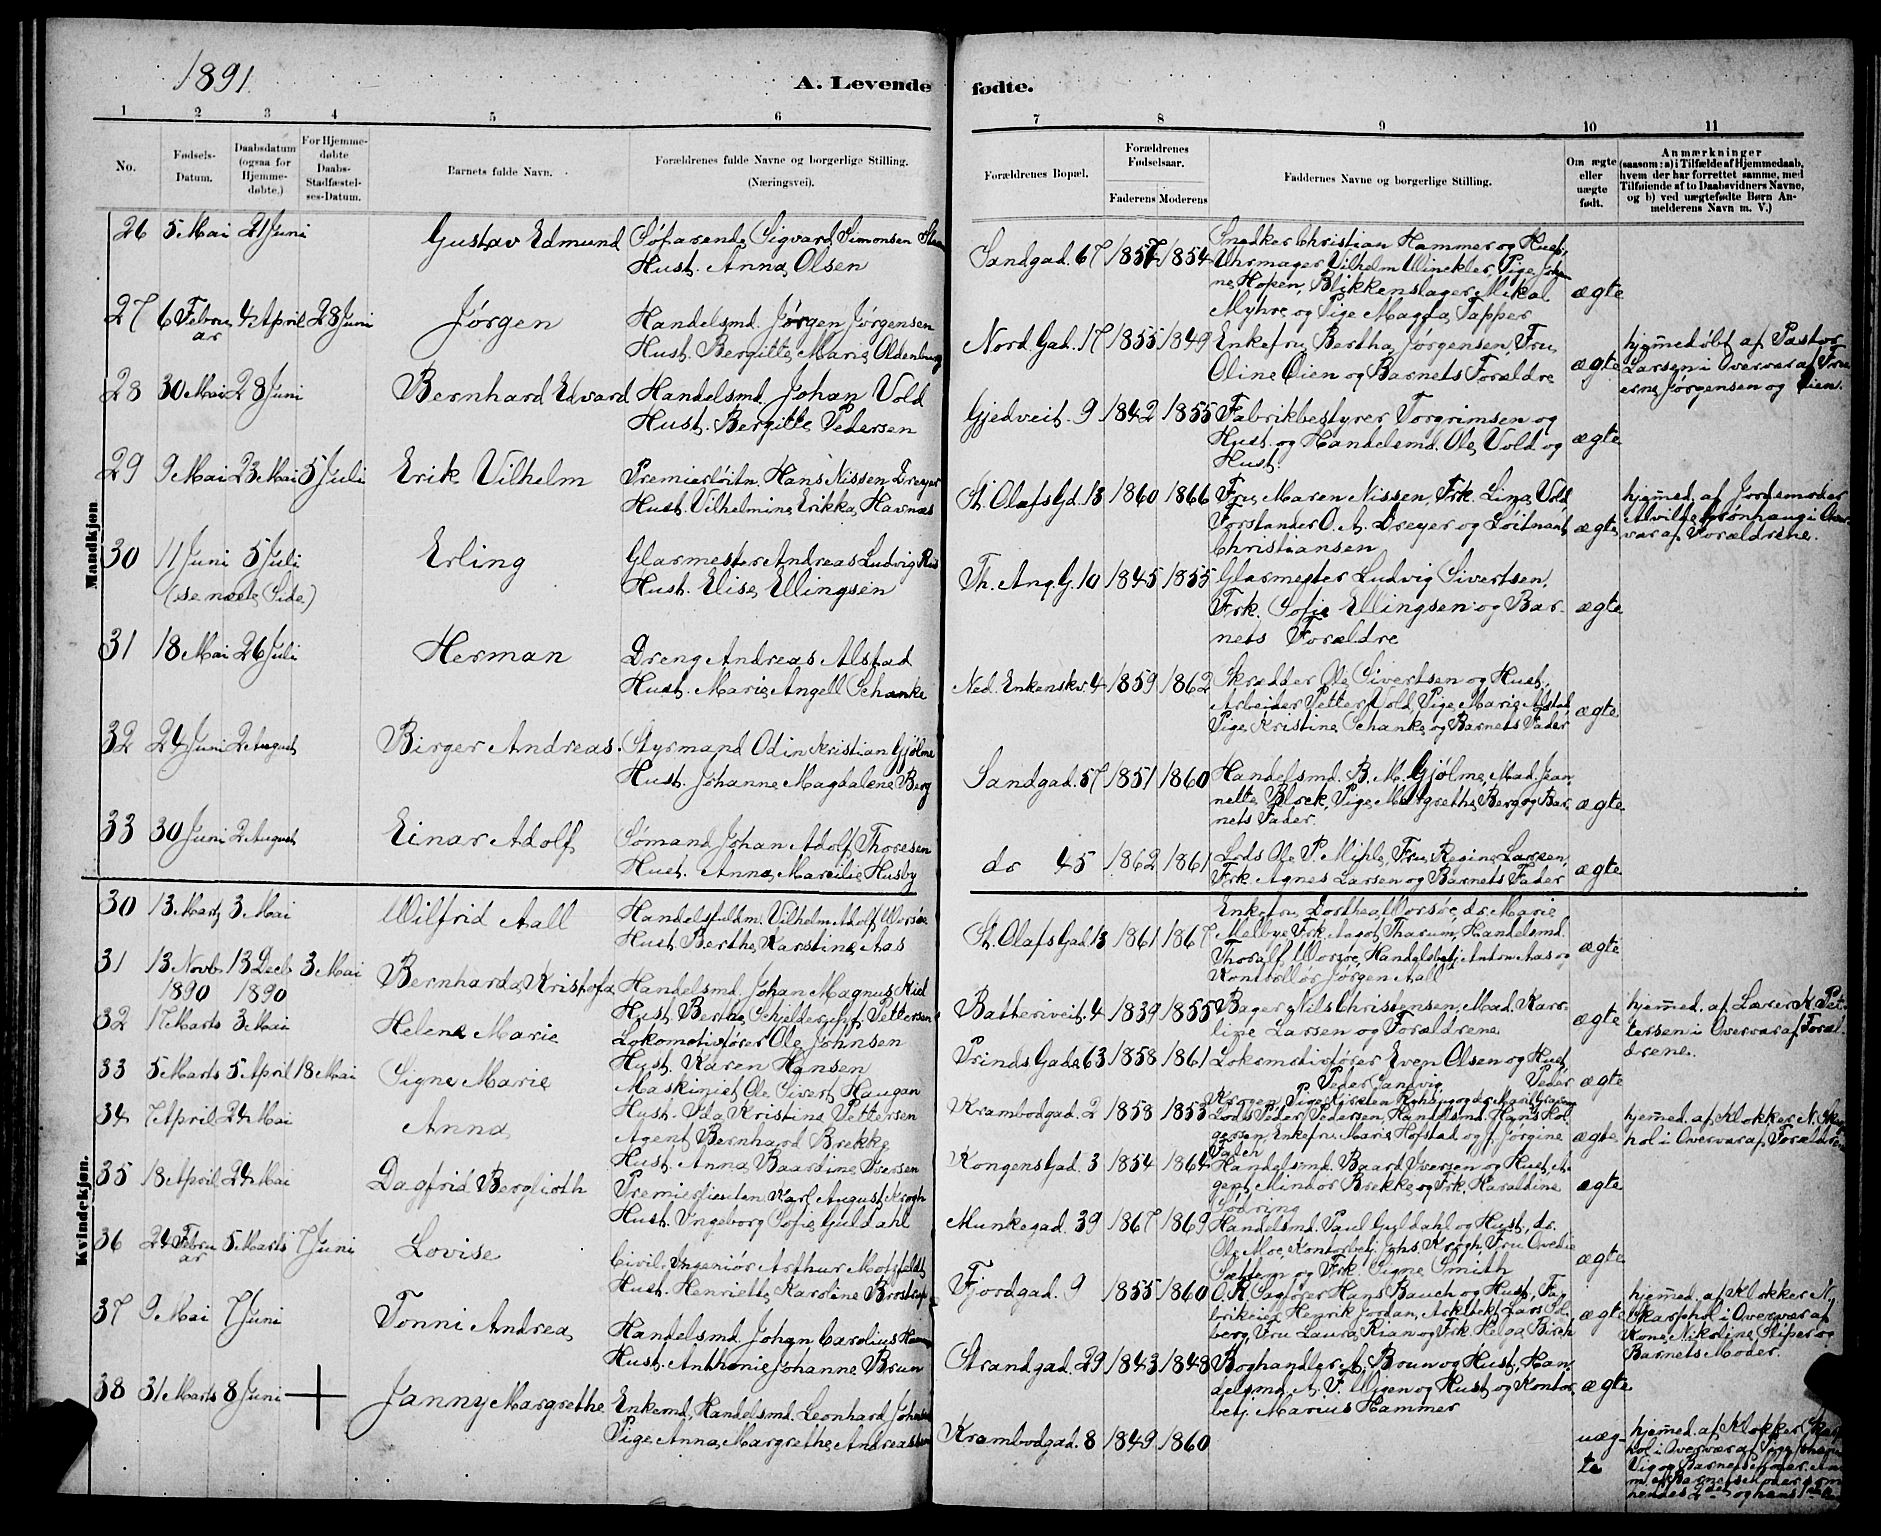 1891
A. Levende fødte.
1 2 3 4 5 6 7 8 9 10 11
No.
Fødsels-Datum.
Daabsdatum (ogsaa for Hjemmedøbte.)
For Hjemmedøbte Daabs-Stadfæstelses-Datum.
Barnets fulde Navn.
Forældrenes fulde Navne og borgerlige Stilling.
(Næringsvei).
Forældrenes Bopæl.
Forældrenes Fødselsaar.
Faderens Moderens
Faddernes Navne og borgerlige Stilling.
Om ægte eller uægte født.
Anmærkninger
(saasom: a) i Tilfælde af Hjemmedaab,
hvem der har forrettet samme, med
Tilføiende af to Daabsvidners Navne,
og b) ved uægtefødte Børn Anmelderens Navn m. V.)
Mandkjøn
26 5 Mai 21 Juni Gustav Edmund Søfarende Sigvard Simonsen
Hust. Anna Olsen
Sandgad. 67 1857 1854 Snedker Christian Hammer og Hust,
Uhrmager Vilhelm Winckler, Pige
Hopen, Blikkenslager Mikal
Myhre og Pige Magda Tapper
ægte
27 6 Februar 4 April 28 Juni Jørgen Handelsmd. Jørgen Jørgensen
Hust. Bergitte Marie Oldenburg
Nord. Gad. 17 1855 1849 Enkefru Bertha Jørgensen, Fru
Oline Øien og Barnets Forældre
ægte
hjemedøbt af Pastor
Larsen i Overvær af Fruerne Jørgensen og Øien.
28 30 Mai 28 Juni Bernhard Edvard Handelsmd. Johan Vold
Hust. Bergitte Pedersen
Gjedveit. 9 1842 1855 Fabrikbestyrer Torgrimsen og
Hust. og Handelsmd. Ole Vold og
Hust.
ægte
29 9 Mai 23 Mai 5 Juli Erik Vilhelm Premierløitn. Hans Nissen Dreyer
Hust. Vilhelmine Erikka Havnæs
St. Olafs Gd. 13 1860 1866 Fru Maren Nissen, Frk. Lina Vold,
Forstander O. A. Dreyer og Løitnant
Christiansen
ægte
hjemed. af Jordemoder
Alvilde Grønhaug i Overvær af Forældrene.
30 11 Juni 5 Juli Erling Glarmester Andreas Ludvig
(se næste Side) Hust. Elise Ellingsen
Th. Ang. G. 10 1845 1855 Glarmester Ludvig Sivertsen,
Frk. Sofie Ellingsen og Barnets Forældre
ægte
31 18 Mai 26 Juli Herman Dreng Andreas Alstad
Hust. Marie Angell Schanke
Ned. Enkenskv. 4 1859 1862 Skrædder Ole Sivertsen og Hust,
Arbeider Petter Vold, Pige Marie Alstad
Pige Kristine Schanke og Barnets Fader
ægte
32 24 Juni 2 August Birger Andreas. Styrmand Odin Kristian Gjølme
Hust. Johanne Magdalene Berg
Sandgad. 57 1851 1860 Handelsmd. B. M. Gjølme, Mad. Jeannette Block, Pige Margrethe Berg og Barnets Fader.
ægte
33 30 Juni 2 August Einar Adolf Sømand Johan Adolf Thoresen
Hust. Anna Marcilie Husby
do 45 1862 1861 Lods Ole P. Mihle, Fru Regine Larsen,
Frk. Agnes Larsen og Barnets Fader
ægte
Kvindekjøn.
30 13 Marts 3 Mai Wilfrid Aall Handelsfuldm. Vilhelm Adolf Worsøe
Hust Berthe Karstine Aas
St. Olafs Gad. 13 1861 1867 Enkefru Dorthea Worsøe, do. Marie
Melbye, Frk. Aagot Tharum, Handelsmd.
Thoralf Worsøe, Handelsbetj. Anton Aas og
Kontrollør Jørgen Aall
ægte
31 13 Novb. 1890 13 Decb. 1890 3 Mai Bernharda Kristofa Handelsmd. Johan Magnus Kiel
Hust. Berthe Schjelderup Pettersen
Batteriveit. 4 1839 1855 Bager Nils Christensen, Mad. Karoline Larsen og Forældrene
ægte
hjemed. af Lærer K. Pettersen i Overvær af Forældrene.
32 17 Marts 3 Mai Helena Marie Lokomotivfører Ole Johnsen
Hust. Karen Hansen
Prinds. Gade 63 1858 1861 Lokomotivfører Even Olsen og Hust
Peder Sandvig
ægte
33 5 Marts 5 April 18 Mai Signe Marie Maskinist Ole Sivert Haugan
Hust. Ida Kristine Pettersen
Krambodgad. 2 1858 1853
Lods Peder Pedersen, Handelsmd. Hans Holgersen, Enkefru Marie Hofstad og Jørgine
Falen
ægte
hjemed. af Klokker N. Skarphol i Overvær af Forældrene
34 7 April 24 Mai Anna Agent Bernhard Brekke
Hust. Anna Baardine Iversen
Kongens Gad. 3 1854 1864 Handelsmd. Baard Iversen og Hust, Agent Mindor Brekke og Frk. Haraldine
Sødring
ægte
35 18 April 24 Mai Dagfrid Berglioth Premierlieuten. Karl August Krogh
Hust. Ingeborg Sofie Guldahl
Munkegad. 39 1867 1869 Handelsmd. Paul Guldahl og Hust, do.
Ole Moe, Kontorbetj. Johs. Krogh, Fru Ovedie
Sættem og Frk. Signe Smith
ægte
36 24 Februar 5 Marts 7 Juni Lovise Civil. Ingeniør Arthur Motzfeldt
Hust. Henriette Karoline Brostrup
Fjordgad. 9 1855 1860 O. R. Sagfører Hans Bauch og Hust, Fabrikeier Henrik Jordan, Arkitekt Lars Solberg, Fru Laura Kran og Frk. Helga Birch
ægte
hjemed. af Klokker N.
Skarphol i Overvær af
Kone Nikoline Stiper og
Barnets Moder.
37 9 Mai 7 Juni Tonni Andrea Handelsmd. Johan Carolius
Hust. Anthonie Johanne Brun
Strandgad. 29 1843 1848 Boghandler A. Brun og Hust, Handelsmd. A. P. Wigen og Hust og Kontorbetj. Marius Hammer
ægte
38 31 Marts 8 Juni Janny Margrethe Enkemd. Handelsmd. Leonhard
Pige Anna Margrethe
Krambodgad. 8 1849 1860
uægte
hjemed. af Klokker
hol i Overvær af Pige
Vig og Barnets Moder.